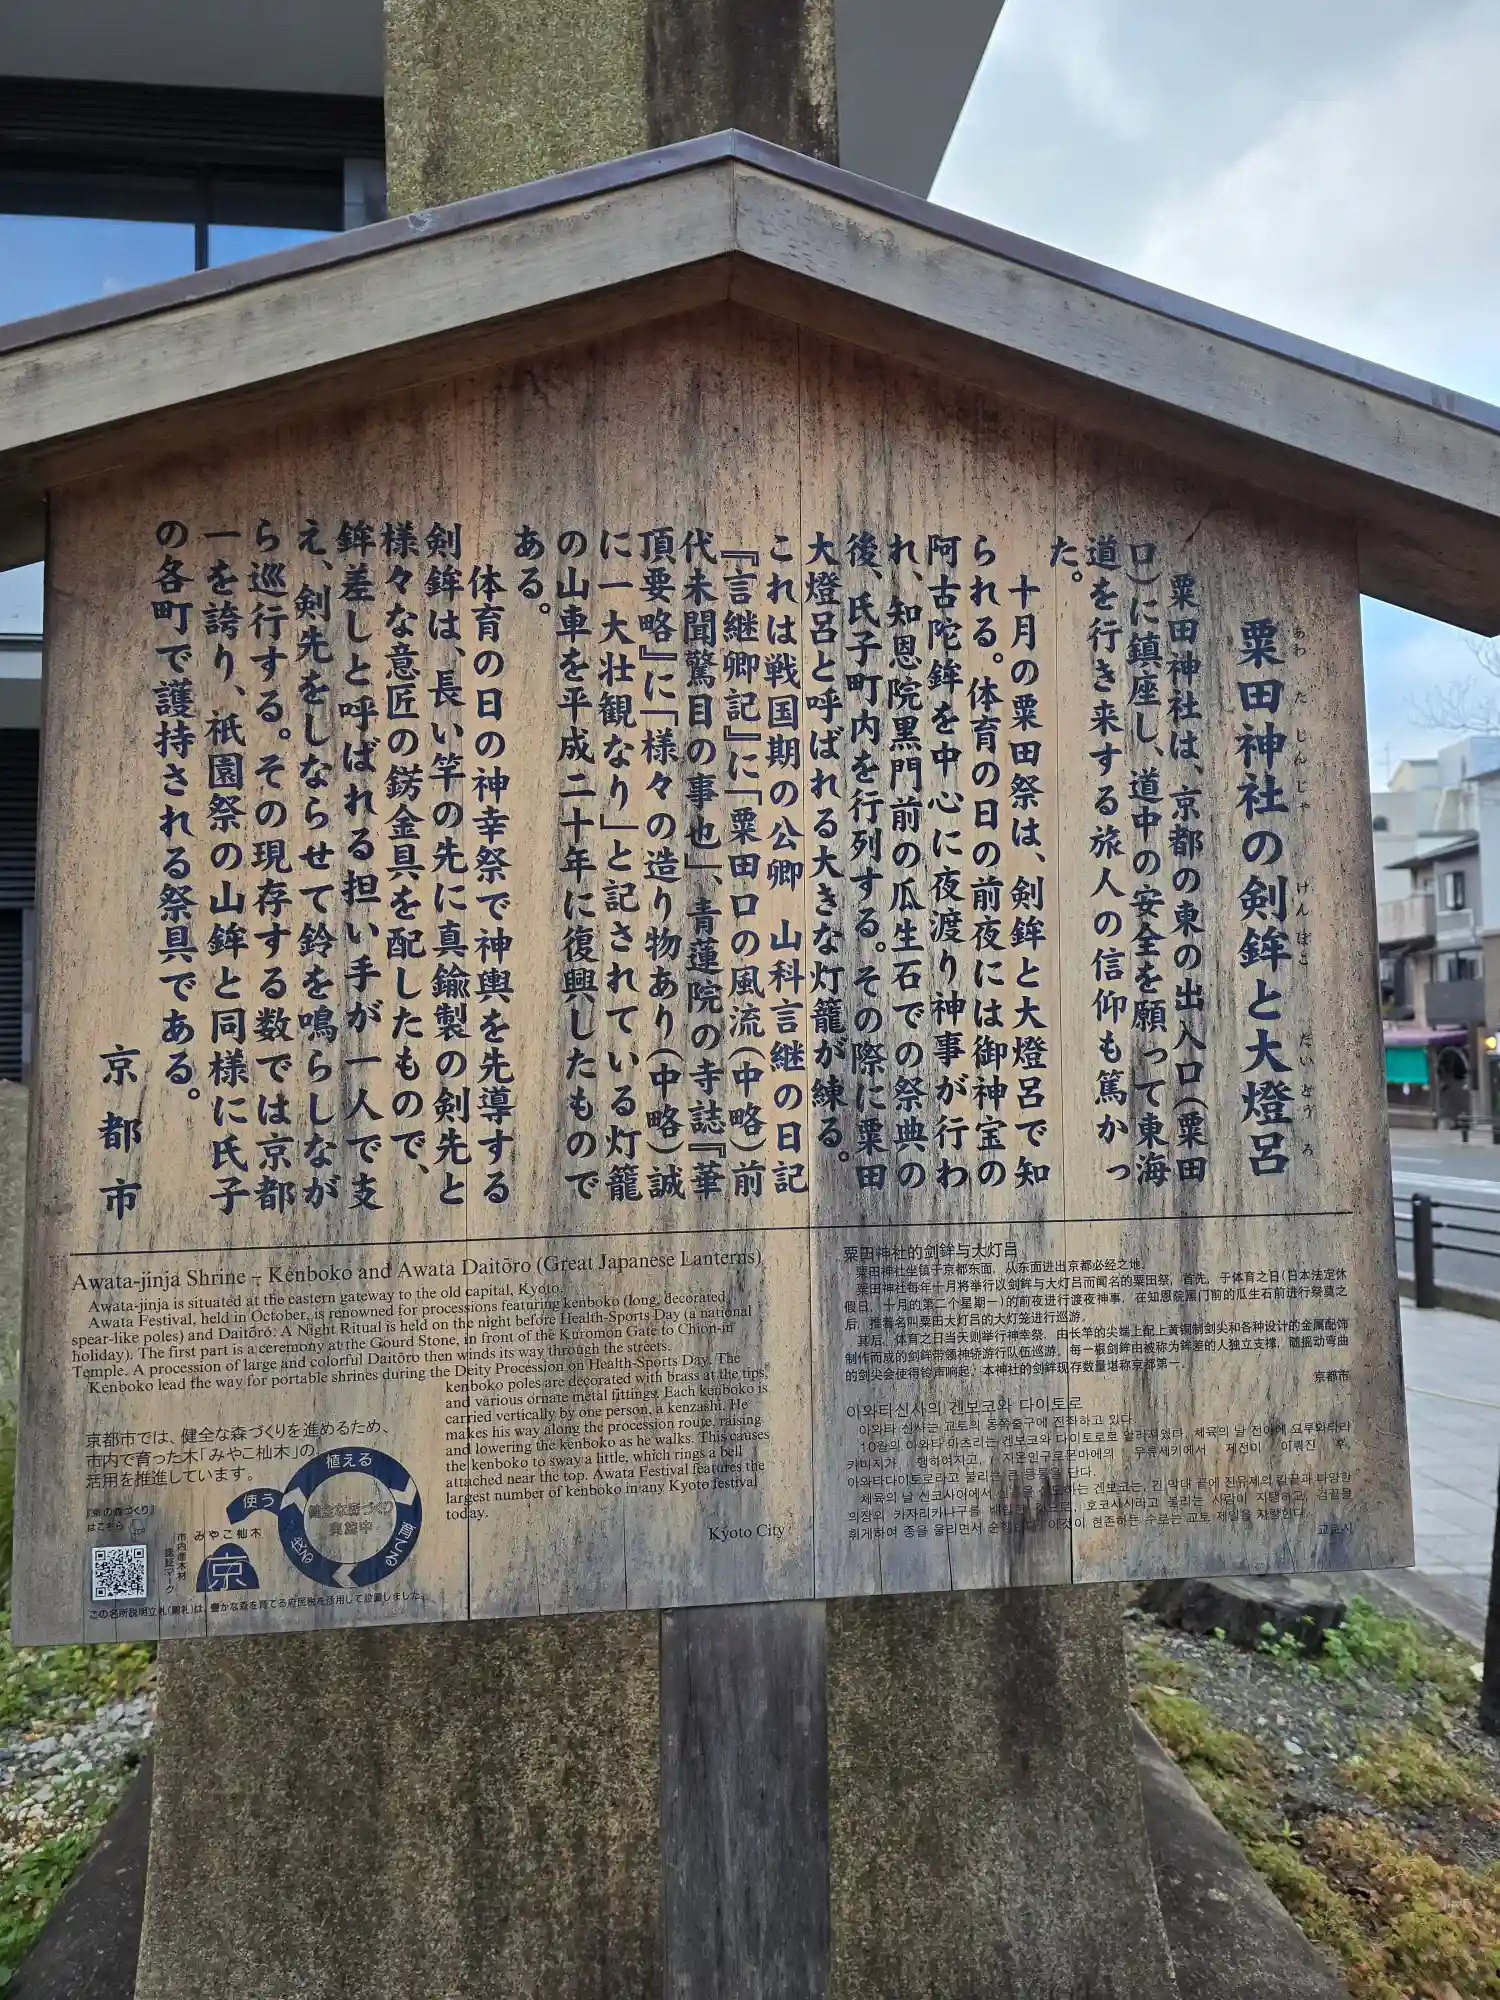 粟田神社の剣鉾と大燈呂
あわ だ じんじゃ けんぼこ だいとうろ
粟田神社は、京都の東の出入口(粟田
口)に鎮座し、道中の安全を願って東海
道を行き来する旅人の信仰も篤かっ
た。
十月の粟田祭は、剣鉾と大燈呂で知
られる。体育の日の前夜には御神宝の
阿古陀鉾を中心に夜渡り神事が行わ
れ、知恩院黒門前の瓜生石での祭典の
後、氏子町内を行列する。その際に粟田
大燈呂と呼ばれる大きな灯籠が練る。
これは戦国期の公卿 山科言継の日記
『言継卿記』に「粟田口の風流(中略)前
代未聞驚目の事也」、青蓮院の寺誌『華
頂要略』に「様々の造り物あり(中略)誠
に一大壮観なり」と記されている灯籠
の山車を平成二十年に復興したもので
ある。
体育の日の神幸祭で神輿を先導する
剣鉾は、長い竿の先に真鍮製の剣先と
様々な意匠の錺金具を配したもので、
鉾差しと呼ばれる担い手が一人で支
え、剣先をしならせて鈴を鳴らしなが
ら巡行する。その現存する数では京都
一を誇り、祇園祭の山鉾と同様に氏子
の各町で護持される祭具である。
京都市
Awata-jinja Shrine – Kenboko and Awata Daitōro (Great Japanese Lanterns)
Awata-jinja is situated at the eastern gateway to the old capital, Kyoto.
Awata Festival, held in October, is renowned for processions featuring kenboko (long, decorated
spear-like poles) and Daitōrō. A Night Ritual is held on the night before Health-Sports Day (a national
holiday). The first part is a ceremony at the Gourd Stone, in front of the Kuromon Gate to Chion-in
Temple. A procession of large and colorful Daitōro then winds its way through the streets.
Kenboko lead the way for portable shrines during the Deity Procession on Health-Sports Day. The
kenboko poles are decorated with brass at the tips,
and various ornate metal fittings. Each kenboko is
carried vertically by one person, a kenzashi. He
makes his way along the procession route, raising
and lowering the kenboko as he walks. This causes
the kenboko to sway a little, which rings a bell
attached near the top. Awata Festival features the
largest number of kenboko in any Kyoto festival
today.
Kyoto City
京都市では、健全な森づくりを進めるため、
市内で育った木「みやこ杣木」の
活用を推進しています。
植える
育てる
伐る
使う
健全な森づくり
実施中
『京の森づくり』
はこちら
市内産木材
認証マーク
みやこ杣木
京
この名所説明立札(駒札)は、豊かな森を育てる府民税を活用して設置しました。
粟田神社的剑鉾与大灯吕
粟田神社坐镇于京都东面,从东面进出京都必经之地。
粟田神社每年十月将举行以剑鉾与大灯吕而闻名的粟田祭,首先,于体育之日(日本法定休
假日,十月的第二个星期一)的前夜进行渡夜神事,在知恩院黑门前的瓜生石前进行祭奠之
后,推着名叫粟田大灯吕的大灯笼进行巡游。
其后,体育之日当天则举行神幸祭,由长竿的尖端上配上黃铜制剑尖和各种设计的金属配饰
制作而成的剑鉾带领神轿游行队伍巡游。每一根剑鉾由被称为鉾差的人独立支撑,随摇动弯曲
的剑尖会使得铃声响起,本神社的剑鉾现存数量堪称京都第一。
京都市
아와타신사의 겐보코와 다이토로
아와타 신사는 교토의 동쪽출구에 진좌하고 있다.
10월의 아와타 마츠리는 겐보코와 다이토로로 알려져있다. 체육의 날 전야에 요루와타리
카미지가 행하여지고, 지온인구로몬마에의 우류세키에서 제전이 이뤄진 후,
아와타다이토로라고 불리는 큰 등롱을 단다.
체육의 날 신코사이에서 겐보코는, 긴 막대 끝에 진유제의 칼끝과 다양한
의장의 카자리카나구를 호코사시라고 불리는 사람이 지탱하고, 검끝을
휘게하여 종을 울리면서 이것이 현존하는 수로는 교토 제일을 자랑한다.
교토시